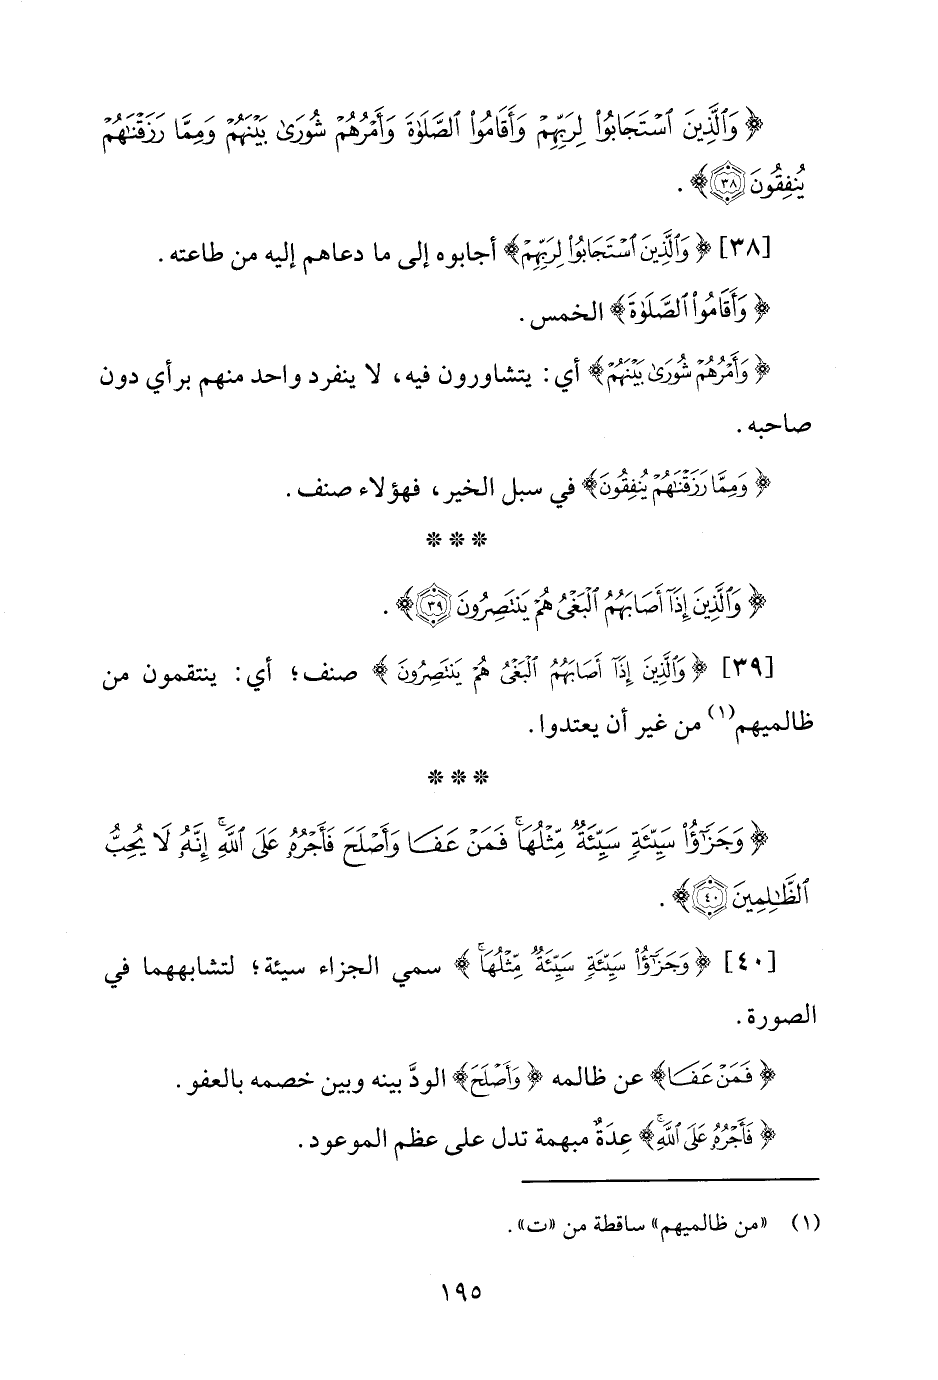 ﴿وَٱلَّذِينَ ٱسْتَجَابُوا۟ لِرَبِّهِمْ وَأَقَامُوا۟ ٱلصَّلَوٰةَ وَأَمْرُهُمْ شُورَىٰ بَيْنَهُمْ وَمِمَّا رَزَقْنَـٰهُمْ
يُنفِقُونَ ٣٨﴾ .
[٣٨] ﴿وَٱلَّذِينَ ٱسْتَجَابُوا۟ لِرَبِّهِمْ﴾ أجابوه إلى ما دعاهم إليه من طاعته .
﴿وَأَقَامُوا۟ ٱلصَّلَوٰةَ﴾ الخمس .
﴿وَأَمْرُهُمْ شُورَىٰ بَيْنَهُمْ﴾ أي: يتشاورون فيه، لا ينفرد واحد منهم برأي دون
صاحبه .
﴿وَمِمَّا رَزَقْنَـٰهُمْ يُنفِقُونَ﴾ في سبل الخير، فهؤلاء صنف .
* * *
﴿وَٱلَّذِينَ إِذَآ أَصَابَهُمُ ٱلْبَغْىُ هُمْ يَنتَصِرُونَ ٣٩﴾ .
[٣٩] ﴿وَٱلَّذِينَ إِذَآ أَصَابَهُمُ ٱلْبَغْىُ هُمْ يَنتَصِرُونَ﴾ صنف؛ أي: ينتقمون من
ظالميهم(١) من غير أن يعتدوا .
* * *
﴿وَجَزَٰٓؤُا۟ سَيِّئَةٍ سَيِّئَةٌ مِّثْلُهَا ۖ فَمَنْ عَفَا وَأَصْلَحَ فَأَجْرُهُۥ عَلَى ٱللَّهِ ۚ إِنَّهُۥ لَا يُحِبُّ
ٱلظَّـٰلِمِينَ ٤٠﴾ .
[٤٠] ﴿وَجَزَٰٓؤُا۟ سَيِّئَةٍ سَيِّئَةٌ مِّثْلُهَا ۖ﴾ سمي الجزاء سيئة؛ لتشابههما في
الصورة .
﴿فَمَنْ عَفَا﴾ عن ظالمه ﴿وَأَصْلَحَ﴾ الودَّ بينه وبين خصمه بالعفو .
﴿فَأَجْرُهُۥ عَلَى ٱللَّهِ ۚ﴾ عِدَةٌ مبهمة تدل على عظم الموعود .
(١) «من ظالميهم» ساقطة من «ت» .
١٩٥